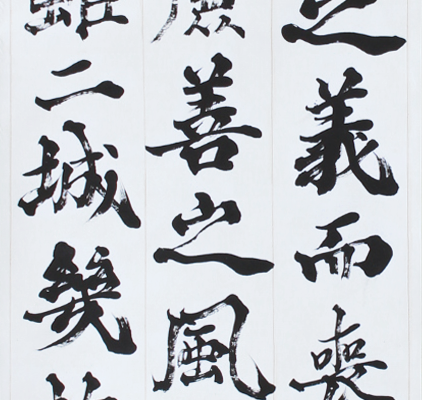 之義而喪
廉善之風
雖二城幾